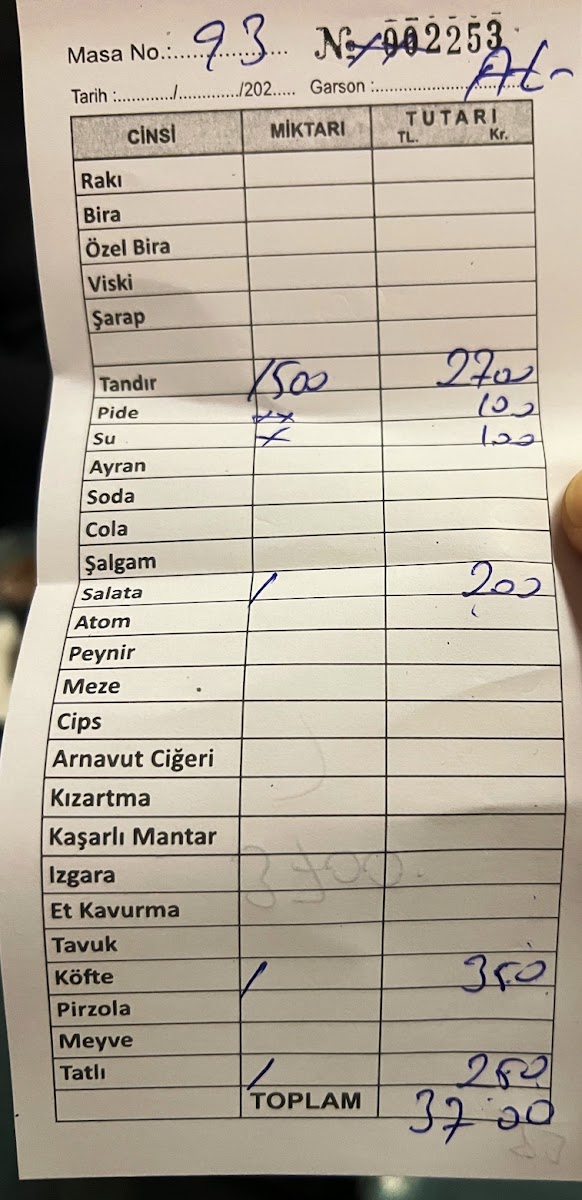 Masa No.:.................. 93 № 002253
Tarih :............/............/202..... Garson :.................................
CİNSİ MİKTARI TUTARI
TL. Kr.
Rakı
Bira
Özel Bira
Viski
Şarap
Tandır 1500 2700
Pide xx 100
Su x 100
Ayran
Soda
Cola
Şalgam
Salata / 200
Atom
Peynir
Meze
Cips
Arnavut Ciğeri
Kızartma
Kaşarlı Mantar
Izgara
Et Kavurma
Tavuk
Köfte / 350
Pirzola
Meyve
Tatlı / 250
TOPLAM 3700